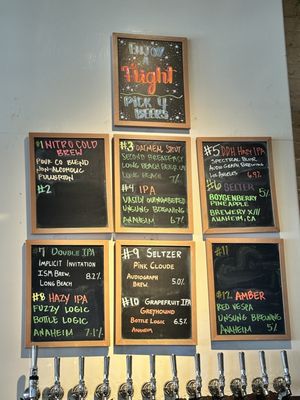 ENJOY
A
Flight
PICK 4
BEERS
#1 NITRO COLD
BREW
POUR CO BLEND
NON-ALCOHOLIC
FULLERTON
#2
#3 OATMEAL STOUT
SECOND BREAKFAST
LONG BEACH BEER LAB
LONG BEACH 7%
#4 IPA
VASTLY OUTNUMBERED
UNSUNG BREWING
ANAHEIM 6.7%
#5 DDH HAZY IPA
SPECTRAL BLUR
AUDIOGRAPH BREWING
LOS ANGELES 6.9%
#6 SELTZER
BOYGENBERRY 5%
PINEAPPLE
BREWERY X///
ANAHEIM, CA
#7 DOUBLE IPA
IMPLICIT INVITATION
ISM BREW. 8.2%
LONG BEACH
#8 HAZY IPA
FUZZY LOGIC
BOTTLE LOGIC
ANAHEIM 7.1%
#9 SELTZER
PINK CLOUDE
AUDIOGRAPH 5.0%
BREW.
#10 GRAPEFRUIT IPA
GREYHOUND
BOTTLE LOGIC 6.5%
ANAHEIM
#11
#12 AMBER
RED VESPA
UNSUNG BREWING
ANAHEIM 5%